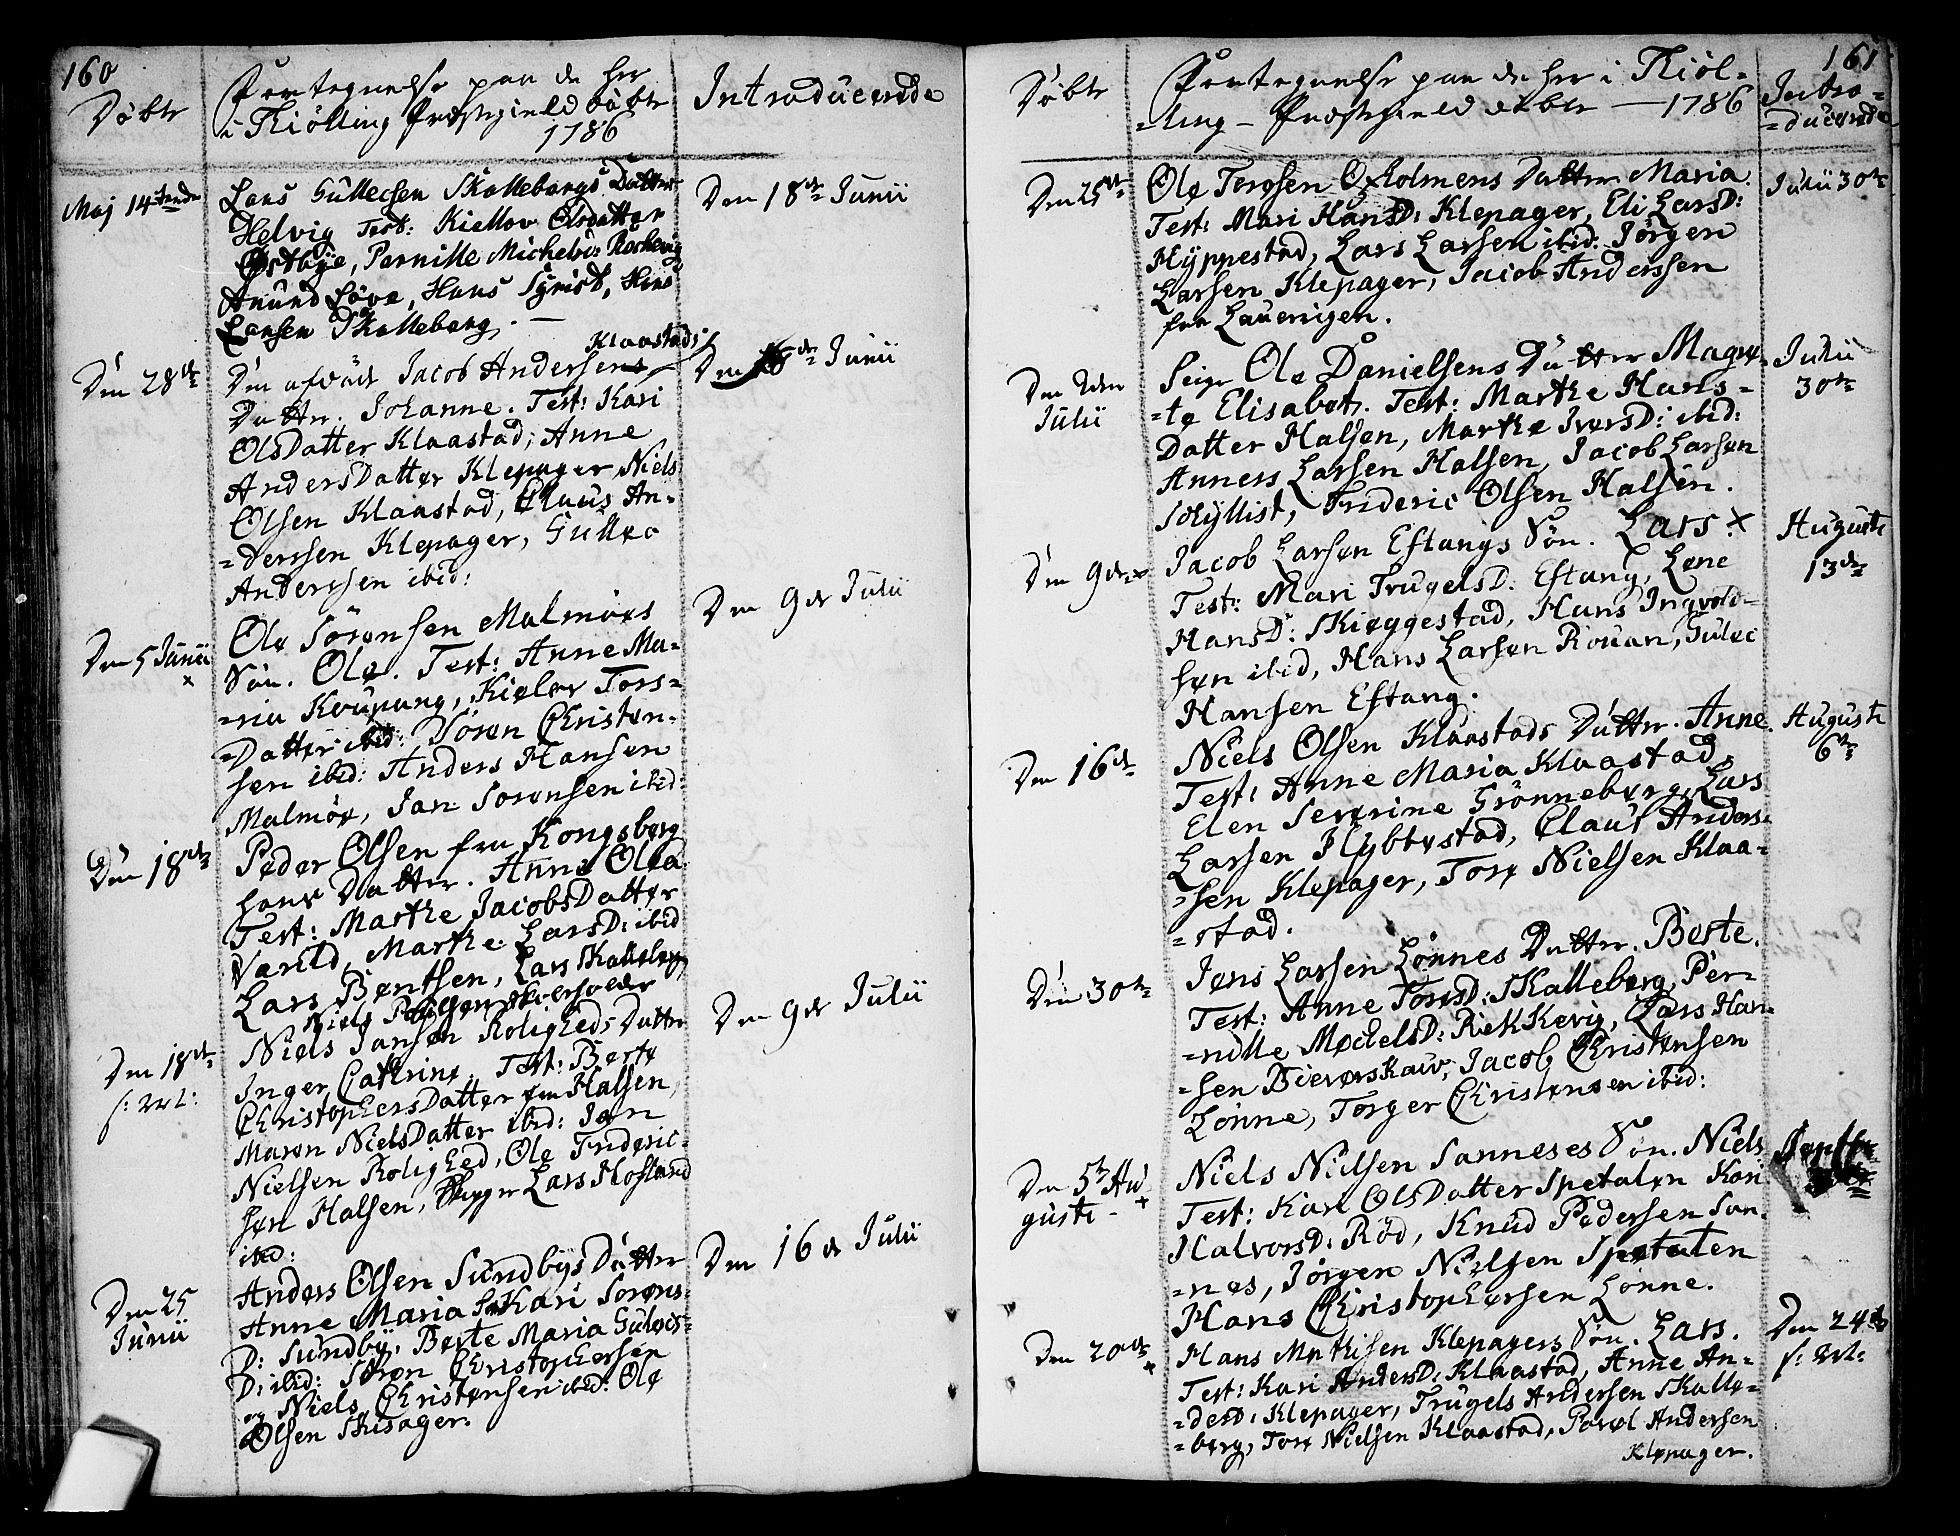 160
Døbte
Fortegnelse paa de her
i Kiølling Præstegield døbte
1786
Introducerede
Maj 14tende
Lars Gullecsen Skallebergs Datter
Helvig Test: Kiellov Olsdatter
Østbye, Pernille Michelsd: Rechevig
Anund Løve, Hans Syrist, Hans
Larsen Skalleberg.
Den 18de Junii
Den 28de
Klaastads
Den afdøde Jacob Andersens
Datter. Johanne. Test: Kari
OlsDatter Klaastad, Anne
AndersDatter Klepager, Niels
Olsen Klaastad, Claus An-
=derssen Klepager, Gulleo
Anderssen ibid:
Den 18de Junii
Den 5 Junii
x
Ole Sørensen Malmøes
Søn. Ole. Test: Anne Ma-
=ria Koupang, Kieler Tors-
=Datter ibid: Søren Christen-
sen ibid: Anders Hansen
Malmøe, Jan Sorensen ibid:
Den 9de Julii
Den 18de
Peder Olsen fra Kongsberg
hans Datter. Anne Olea
Test: Marthe JacobsDatter
Varild, Marthe LarsD: ibid
Lars Bentsen, Lars Skalleberg
Niels
Den 18de
s: M:
Niels Jansen Roligheds Datter
Inger Cathrine. Test: Berte
ChristophersDatter fra Halsen,
Maren NielsDatter ibid: Jan
Nielsen Rolighed, Ole Frideric-
sen Halsen, Lars Hofland
ibid:
Den 9de Julii
Den 25
Junii
Anders Olsen Sundbys Datter
Anne Maria Kari Sorens-
D: Sundby, Berte Maria Guloes-
D: ibid: Søren Christophersen
og Niels Christensen ibid: Ole
Olsen Skisager.
Den 16de Julii
161
Døbte
Fortegnelse paa de her i Kiøl-
=ling - Præstegield døbte - 1786
Intro=
=ducerede
Den 25de
Ole Tersen Oxholmens Datter Maria.
Test: Mari HansD: Klepager, Eli LarsD:
Hyppestad, Lars Larsen ibid: Jørgen
Larsen Klepager, Jacob Anderssen
fra Lauervigen.
Julii 30te
Den 2den
Julii
Seigr Ole Danielsens Datter Magre-
=te Elisabet. Test: Marthe Hans-
Datter Halsen, Marthe IversD: ibid:
Anners Larsen Halsen, Jacob Larsen
Schyllist, Frideric Olsen Halsen.
Julii
30te
Den 9de x
Jacob Larsen Eftangs Søn. Lars. x
Test: Mari TrugelsD: Eftang, Lene
HansD: Skieggestad, Hans Ingvold-
sen ibid, Hans Larsen Rouan, Guloc
Hansen Eftang.
Augusti
13de
Den 16de
Niels Olsen Klaastads Datter. Anne.
Test: Anne Maria Klaastad,
Elen Severine Grønneberg, Lars
Larsen Hybbestad, Claus Anders-
=sen Klepager, Tore Nielsen Klaa-
=stad.
Augusti
6te
Den 30te
Jens Larsen Lønnes Datter. Berte.
Test: Anne ToresD: Skalleberg, Per-
=nille MechelsD: Rekkevig, Lars Han-
=sen Bieverskau, Jacob Christensen
Lønne, Torger Christensen ibid:
Den 5te Au
gusti - +
Niels Nielsen Sanneses Søn. Niels
Test: Kari OlsDatter Spetalen Kari
HalvorsD: Rød, Knud Pedersen San-
=nes, Jørgen Nielsen Spetalen
Hans Christophersen Lønne.
Septbr
Den 20de
+
Hans Mathisen Klepagers Søn. Lars.
Test: Kari AndersD: Klaastad, Anne An-
=dersD: Klepager, Trugels Andersen Skalle-
=berg, Tore Nielsen Klaastad, Povel Andersen
Klepager.
Den 24de
s: M: